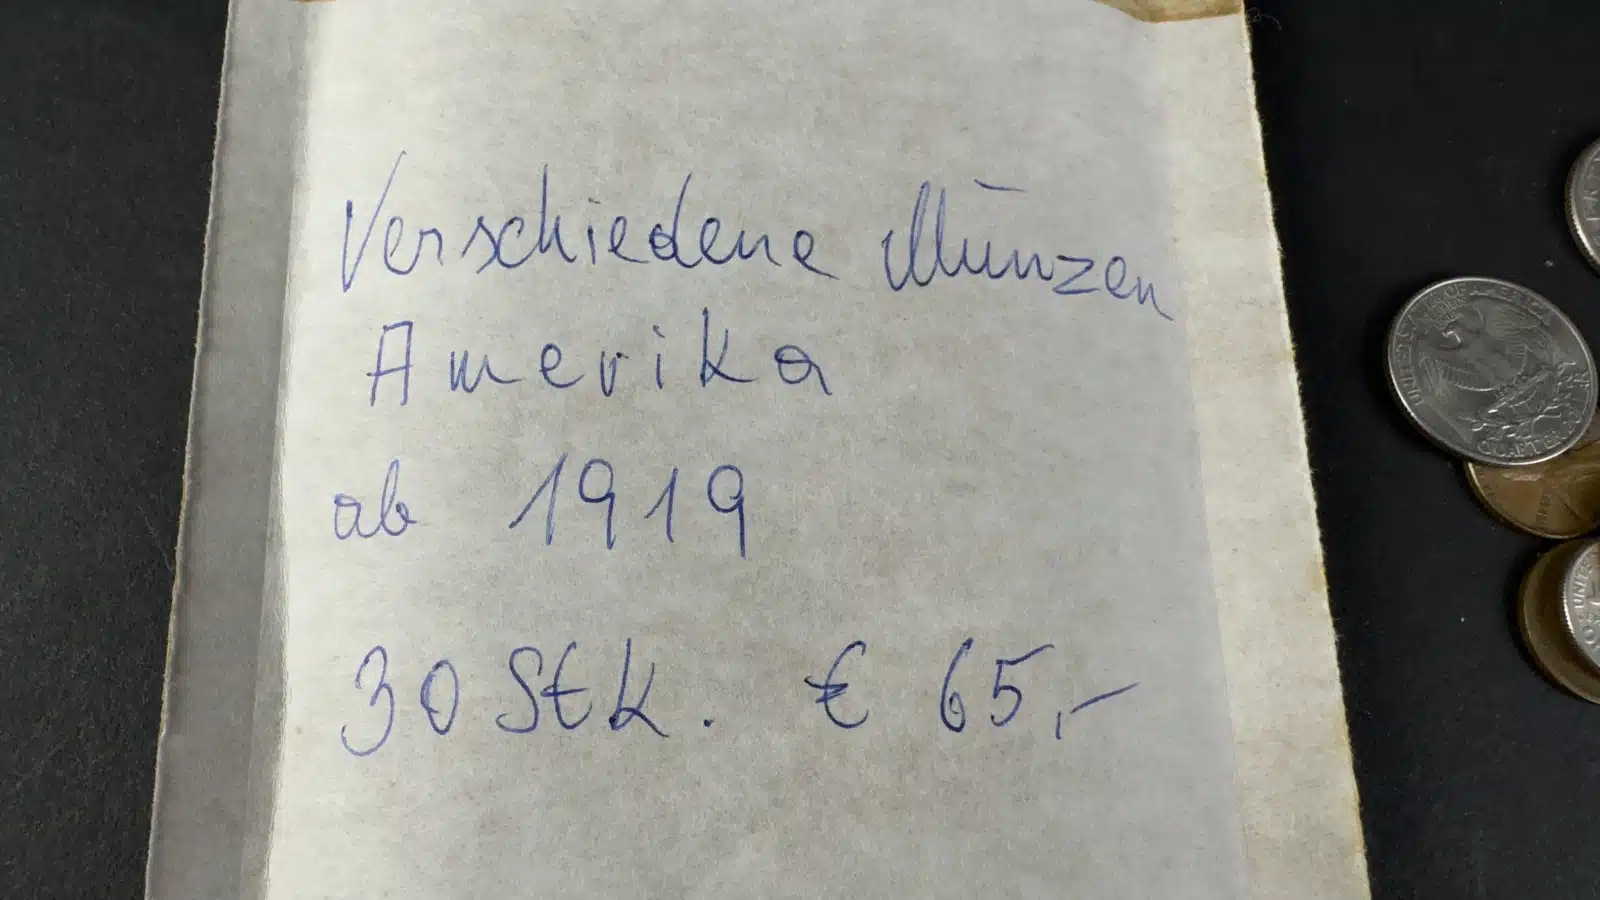 Verschiedene Münzen
Amerika
ab 1919
30 Stk. € 65,-
UNITED STATES OF AMERICA
QUARTER DOLLAR